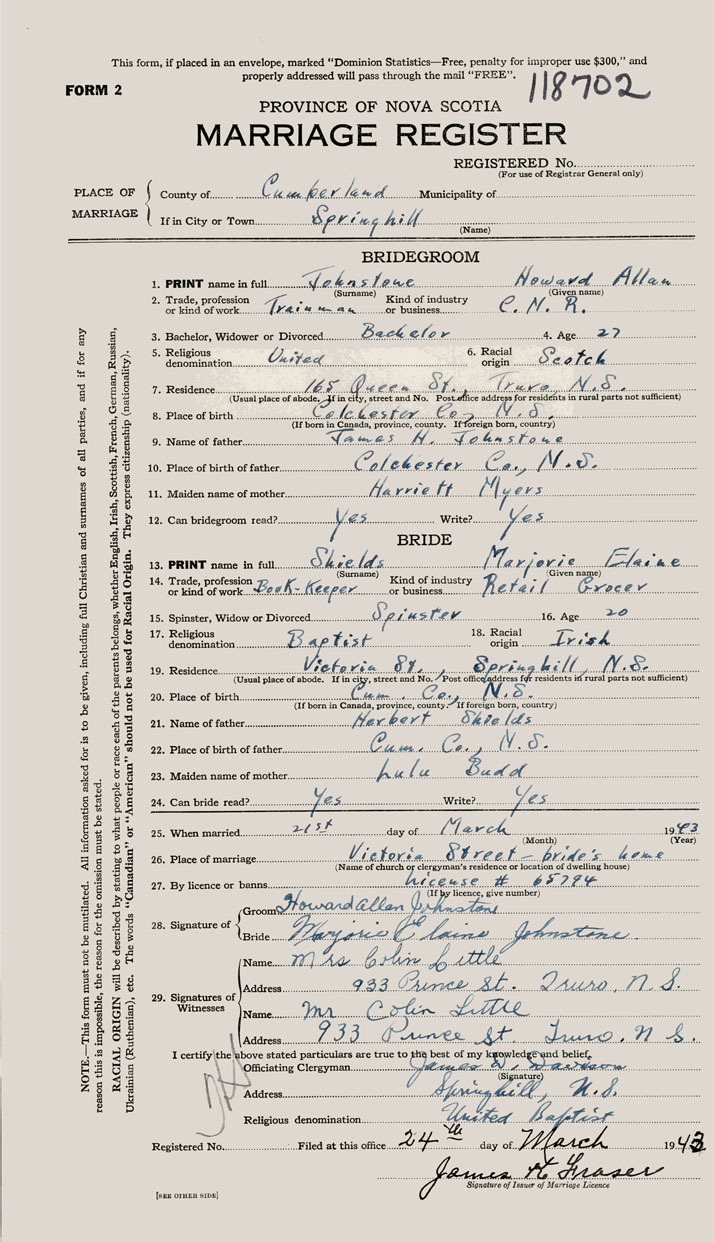 This form, if placed in an envelope, marked "Dominion Statistics—Free, penalty for improper use $300," and
properly addressed will pass through the mail "FREE".
FORM 2
118702
PROVINCE OF NOVA SCOTIA
MARRIAGE REGISTER
REGISTERED No.
(For use of Registrar General only)
PLACE OF MARRIAGE
County of Cumberland Municipality of
If in City or Town Springhill
(Name)
BRIDEGROOM
1. PRINT name in full Johnstone Howard Allan
(Surname) (Given name)
2. Trade, profession or kind of work Trainman Kind of industry or business C. N. R.
3. Bachelor, Widower or Divorced Bachelor 4. Age 27
5. Religious denomination United 6. Racial origin Scotch
7. Residence 165 Queen St., Truro N.S.
(Usual place of abode. If in city, street and No. Post office address for residents in rural parts not sufficient)
8. Place of birth Colchester Co., N.S.
(If born in Canada, province, county. If foreign born, country)
9. Name of father James H. Johnstone
10. Place of birth of father Colchester Co., N.S.
11. Maiden name of mother Harriett Myers
12. Can bridegroom read? Yes Write? Yes
BRIDE
13. PRINT name in full Shields Marjorie Elaine
(Surname) (Given name)
14. Trade, profession or kind of work Book-Keeper Kind of industry or business Retail Grocer
15. Spinster, Widow or Divorced Spinster 16. Age 20
17. Religious denomination Baptist 18. Racial origin Irish
19. Residence Victoria St., Springhill, N.S.
(Usual place of abode. If in city, street and No. Post office address for residents in rural parts not sufficient)
20. Place of birth Cum. Co., N.S.
(If born in Canada, province, county. If foreign born, country)
21. Name of father Herbert Shields
22. Place of birth of father Cum. Co., N.S.
23. Maiden name of mother Lulu Budd
24. Can bride read? Yes Write? Yes
25. When married 21st day of March 1943
(Month) (Year)
26. Place of marriage Victoria Street – bride's home
(Name of church or clergyman's residence or location of dwelling house)
27. By licence or banns License # 65794
(If by licence, give number)
28. Signature of
Groom Howard Allan Johnstone
Bride Marjorie Elaine Johnstone
29. Signatures of Witnesses
Name Mrs Colin Little
Address 933 Prince St. Truro, N.S.
Name Mr Colin Little
Address 933 Prince St. Truro, N.S.
I certify the above stated particulars are true to the best of my knowledge and belief.
Officiating Clergyman James D. Davison
(Signature)
Address Springhill, N.S.
Religious denomination United Baptist
Registered No. Filed at this office 24th day of March 1943
James H Fraser
Signature of Issuer of Marriage Licence
[SEE OTHER SIDE]
NOTE.—This form must not be mutilated. All information asked for is to be given, including full Christian and surnames of all parties, and if for any
reason this is impossible, the reason for the omission must be stated.
RACIAL ORIGIN will be described by stating to what people or race each of the parents belongs, whether English, Irish, Scottish, French, German, Russian,
Ukrainian (Ruthenian), etc. The words "Canadian" or "American" should not be used for Racial Origin. They express citizenship (nationality).